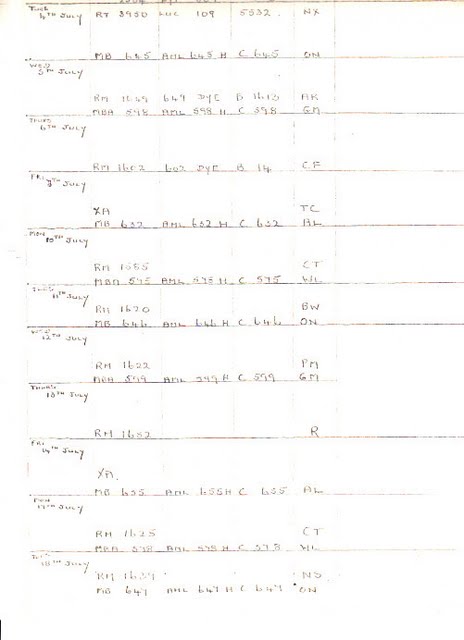 TUES
4TH JULY RT 3950 LUC 109 5532 NX
MB 645 AML 645 H C 645 ON
WED
5TH JULY
RM 1649 649 DYE B 1613 AR
MBA 598 AML 598 H C 598 GM
THURS
6TH JULY
RM 1602 602 DYE B 14 CF
FRI
7TH JULY
XA TC
MB 632 AML 632 H C 632 AL
MON
10TH JULY
RM 1655 CT
MBA 575 AML 575 H C 575 WL
TUES
11TH JULY
RM 1620 BW
MB 646 AML 646 H C 646 ON
WED
12TH JULY
RM 1622 PM
MBA 599 AML 599 H C 599 GM
THURS
13TH JULY
RM 1652 R
FRI
14TH JULY
XA.
MB 655 AML 655H C 655 AL
MON
17TH JULY
RM 1625 CT
MBA 578 AML 578 H C 578 WL
18TH JULY
RM 1637 NS
MB 647 AML 647 H C 647 ON